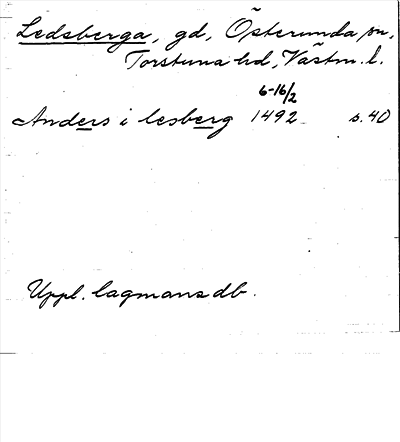 Ledsberga, gd, Österunda sn,
Torstuna hd, Västm. l.
6-16/2
Anders i lesberg 1492 s. 40
Uppl. lagmans db.